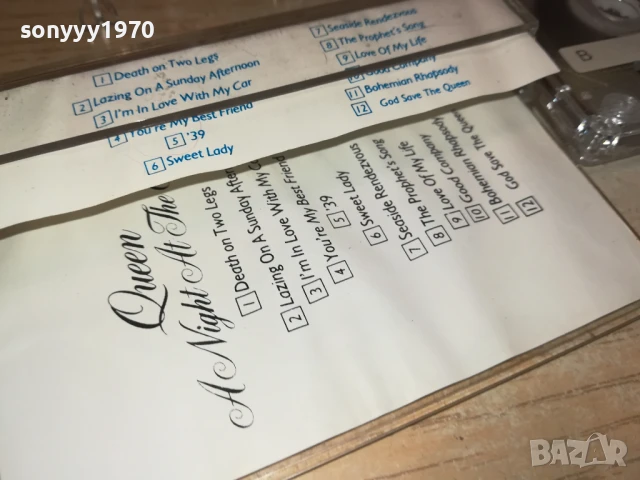 sonyyy1970
1 Death on Two Legs
2 Lazing On A Sunday Afternoon
3 I'm In Love With My Car
4 You're My Best Friend
5 '39
6 Sweet Lady
7 Seaside Rendezvous
8 The Prophet's Song
9 Love Of My Life
10 Good Company
11 Bohemian Rhapsody
12 God Save The Queen
B
Queen
A Night At The
1 Death on Two Legs
2 Lazing On A Sunday After
3 I'm In Love With My C
4 You're My Best Friend
5 '39
6 Sweet Lady
7 Seaside Rendezvous
8 The Prophet's Song
9 Love Of My Life
10 Good Company
11 Bohemian Rhapsody
12 God Save The Queen
BAZAR